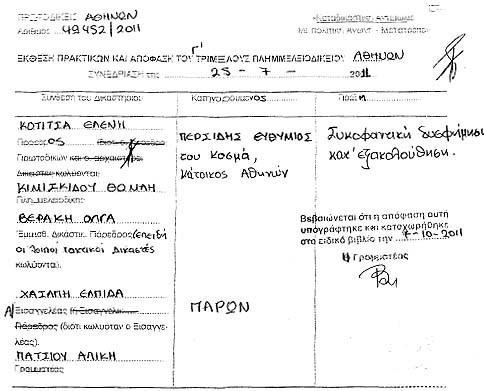 ΠΡΩΤΟΔΙΚΕΙΟ ΑΘΗΝΩΝ
Αριθμός 49452/2011
«Μεταβιβαστικ. Αντίρρησ.
Με πολιτικ. Αγωγή - Μετατροπή»
ΕΚΘΕΣΗ ΠΡΑΚΤΙΚΩΝ ΚΑΙ ΑΠΟΦΑΣΗ ΤΟΥ Γ' ΤΡΙΜΕΛΟΥΣ ΠΛΗΜΜΕΛΕΙΟΔΙΚΕΙΟΥ ΑΘΗΝΩΝ
ΣΥΝΕΔΡΙΑΣΗ της 25 - 7 - 2011
Σύνθεση του Δικαστηρίου
Κατηγορούμενος
Πράξη
ΚΟΤΙΤΣΑ ΕΛΕΝΗ
Πρόεδρος
Πρωτοδικών και ο αρχαιότερος
Δικαστές κωλύονται
ΚΙΜΙΣΚΙΔΟΥ ΘΩΜΑΗ
Πλημμελειοδίκης
ΒΕΡΑΚΗ ΟΛΓΑ
Έμμισθ. Δικαστικ. Πάρεδρος (επειδή
οι λοιποί τακτικοί Δικαστές
κωλύονται).
ΧΑΣΑΠΗ ΕΛΠΙΔΑ
Α/Εισαγγελέας (ή Εισαγγελικ.
Πάρεδρος (διότι κωλυόταν ο Εισαγγε-
λέας).
ΠΑΤΣΙΟΥ ΑΛΙΚΗ
Γραμματέας
ΠΕΡΣΙΔΗΣ ΕΥΘΥΜΙΟΣ
του Κοσμά,
κάτοικος Αθηνών
ΠΑΡΩΝ
Συκοφαντική δυσφήμηση
κατ' εξακολούθηση.
Βεβαιώνεται ότι η απόφαση αυτή
υπογράφτηκε και καταχωρήθηκε
στο ειδικό βιβλίο την 7-10-2011
Η Γραμματέας